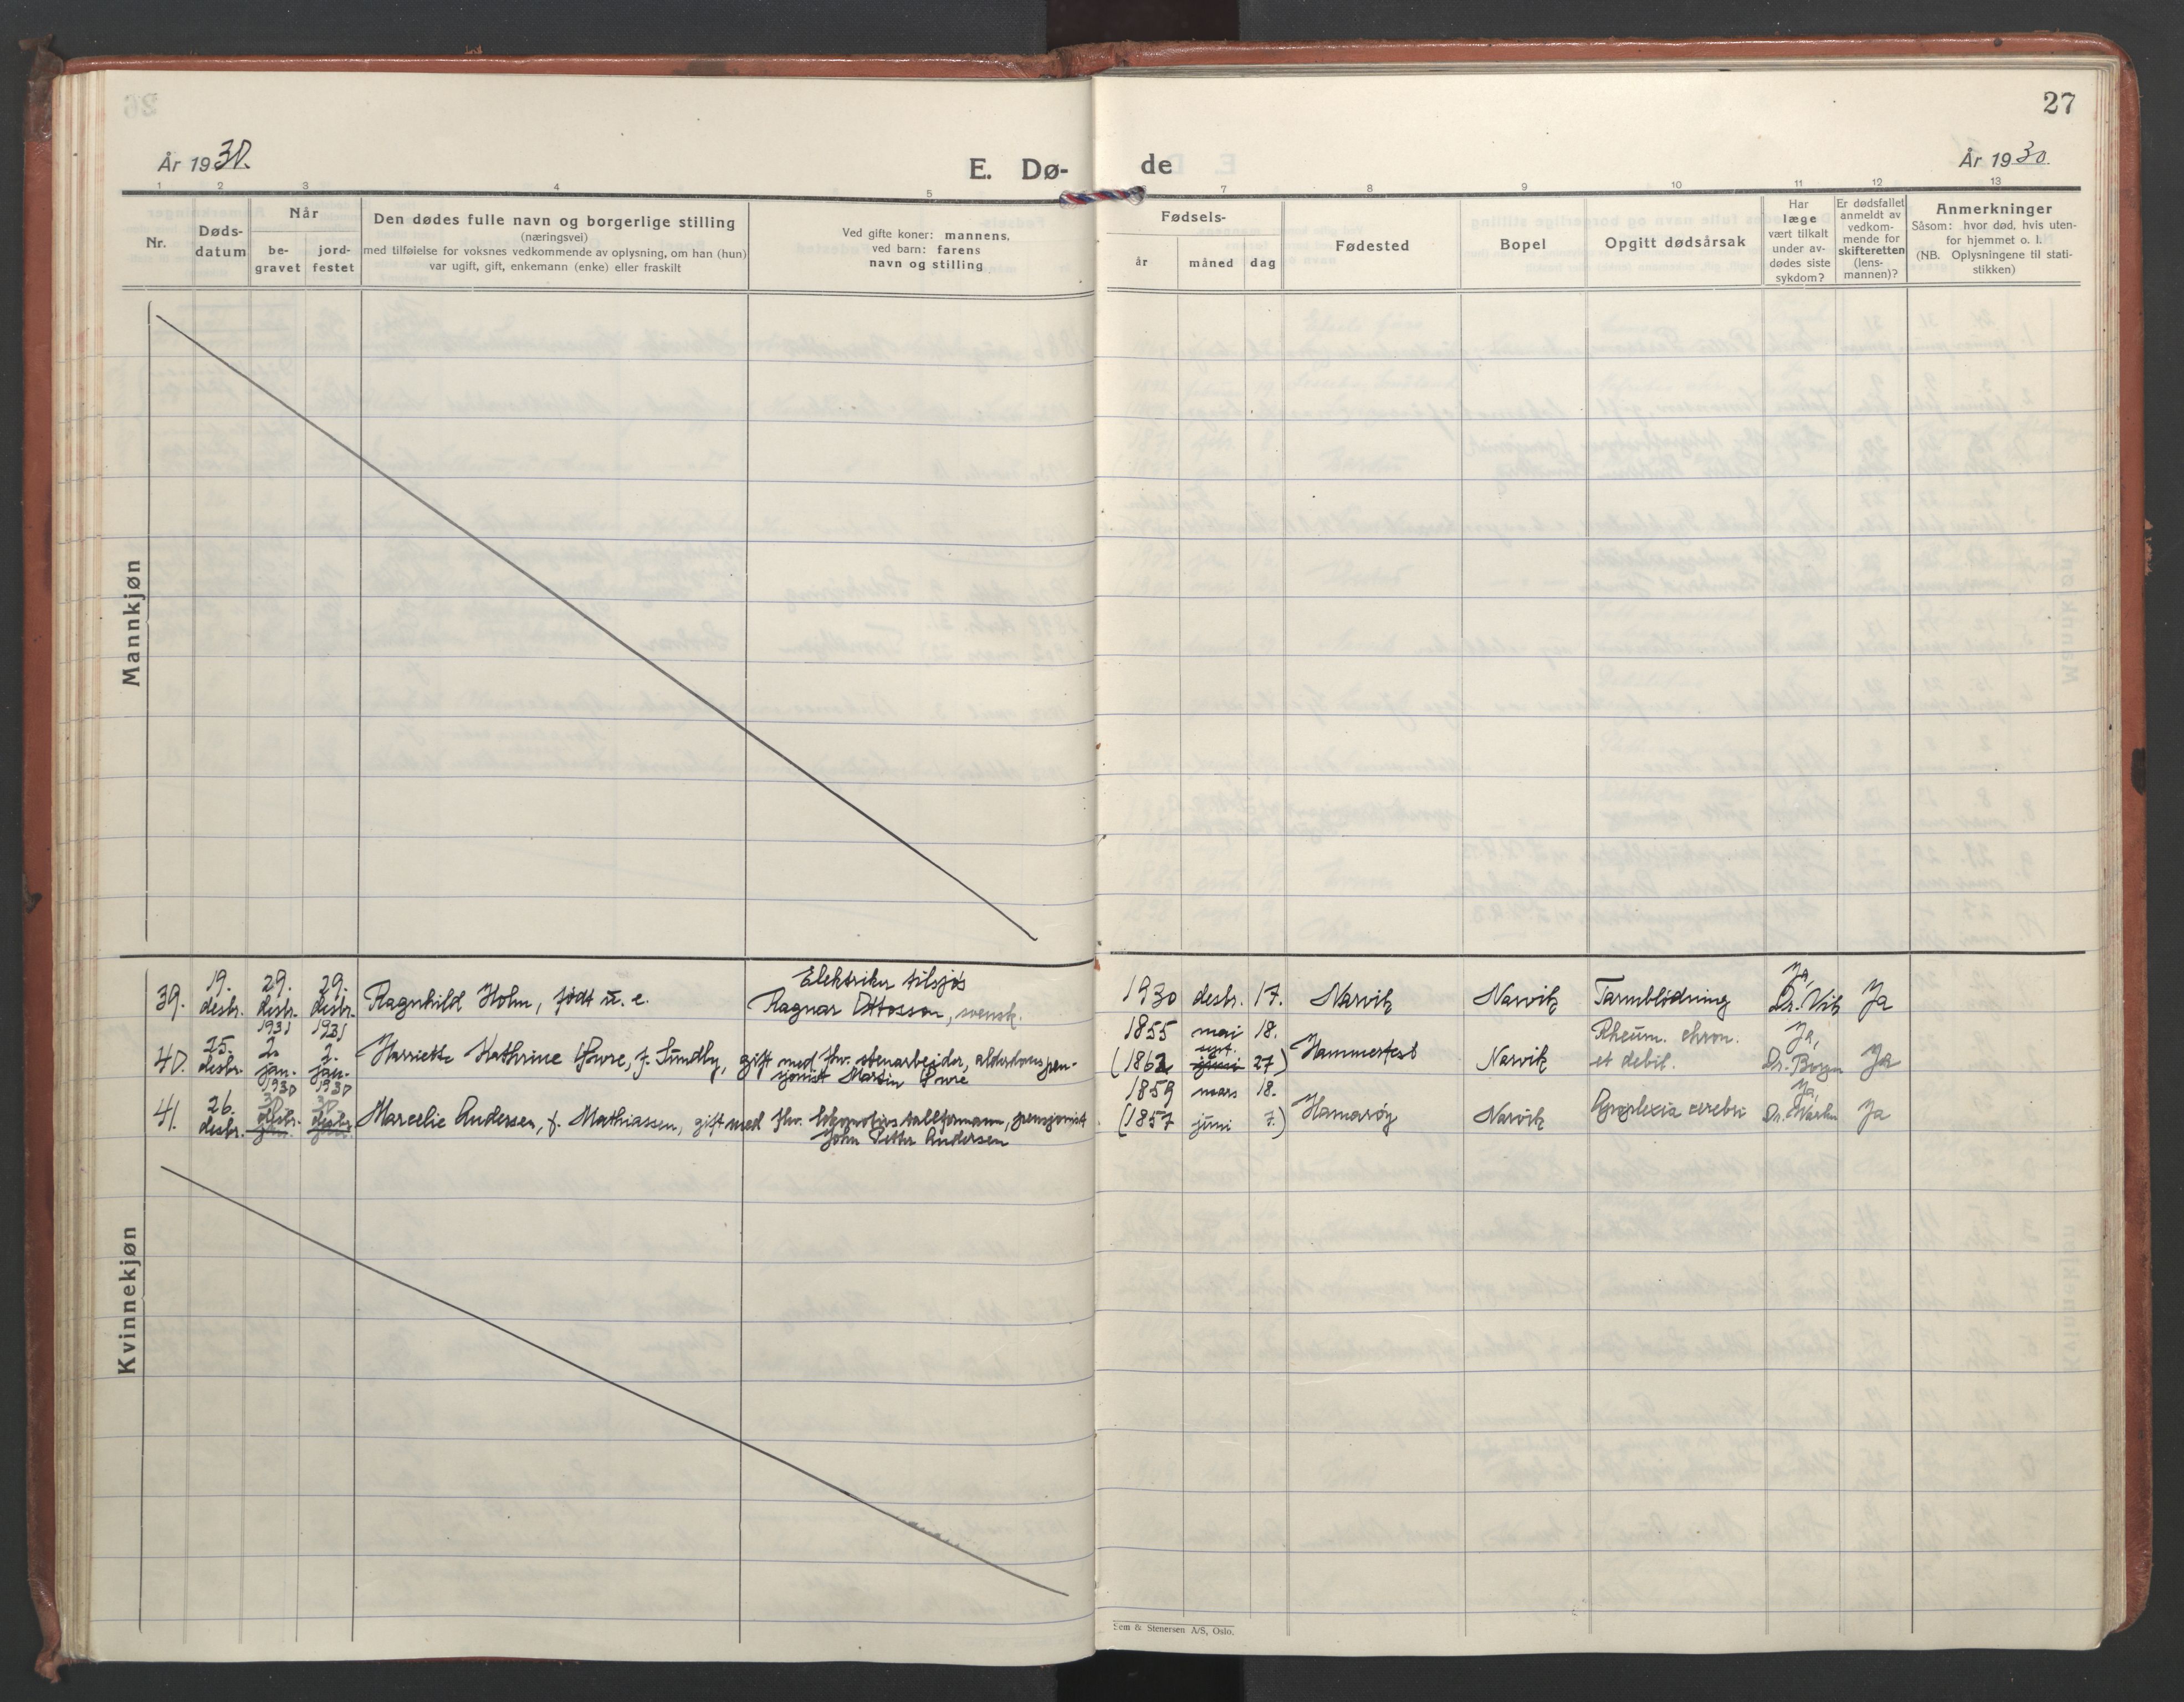 27
År 1930.
E. Dø-
de
År 1930.
1 2 3 4 5 7 8 9 10 11 12 13
Nr.
Døds-
datum
Når
be-
gravet
jord-
festet
Den dødes fulle navn og borgerlige stilling
(næringsvei)
med tilføielse for voksnes vedkommende av oplysning, om han (hun)
var ugift, gift, enkemann (enke) eller fraskilt
Ved gifte koner: mannens,
ved barn: farens
navn og stilling
Fødsels-
år
måned
dag
Fødested
Bopel
Opgitt dødsårsak
Har
læge
vært tilkalt
under av-
dødes siste
sykdom?
Er dødsfallet
anmeldt av
vedkom-
mende for
skifteretten
(lens-
mannen)?
Anmerkninger
Såsom: hvor død, hvis uten-
for hjemmet o. l.
(NB. Oplysningene til stati-
stikken)
Mannkjøn
Kvinnekjøn
39.
19.
desbr.
29.
desbr.
29.
desbr.
Ragnhild Holm, født u. e.
Elektriker
Ragnar Ottosson, svensk.
1930 desbr. 17.
Narvik
Narvik
Tarmblødning
Ja,
Dr. Vik
Ja
40.
25.
desbr.
1931
2.
jan.
1931
2.
jan.
Harriette Kathrine Pwre, f. Sundby, gift med fhv. stenarbeider, alderdomspen-
sjonist Martin Pwre
1855 mai 18.
(1862 sept. juni 27)
Hammerfest
Narvik
Rheum. chron.
et debil.
Ja,
Dr. Borgen
Ja
41.
26.
desbr.
1930
30
desbr.
jan.
1930
30
desbr.
jan.
Marcelie Andersen, f. Mathiassen, gift med fhv. lokomotivstallformann, pensjonist
John Petter Andersen
1859 mars 18.
(1857 juni 7.)
Hamarøy
Narvik
Apoplexia cerebri
Ja,
Dr.
Ja
Sem & Stenersen A/S, Oslo.